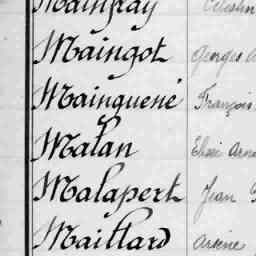 Mainfray Célestin
Maingot Georges
Mainguené François
Malan Elisée
Malapert Jean
Maillard Arsène